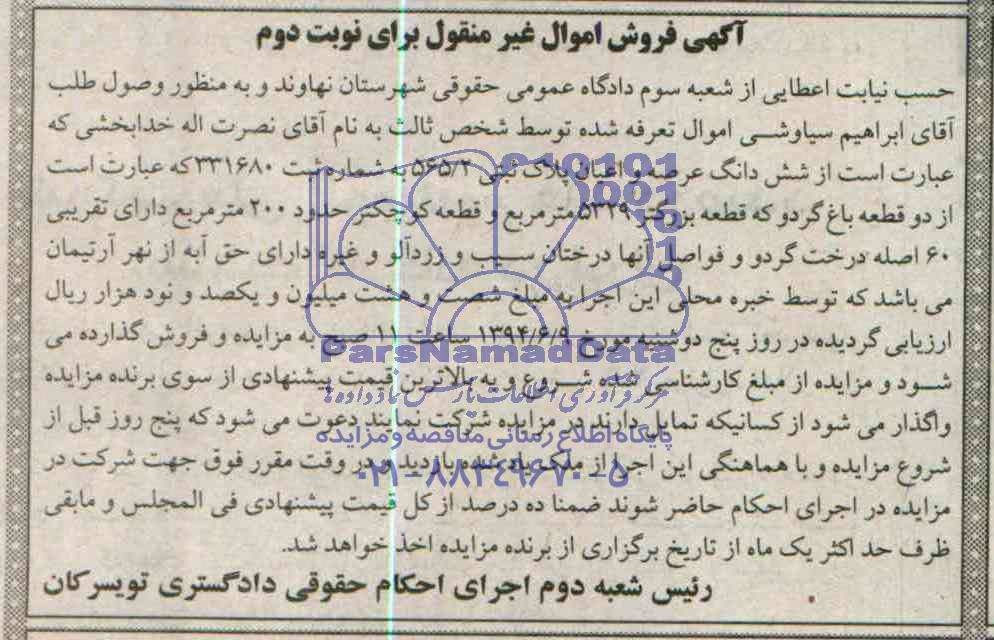 آگهی فروش اموال غیر منقول برای نوبت دوم
حسب نیابت اعطایی از شعبه سوم دادگاه عمومی حقوقی شهرستان نهاوند و به منظور وصول طلب
آقای ابراهیم سیاوشی اموال تعرفه شده توسط شخص ثالث به نام آقای نصرت اله خدابخشی که
عبارت است از شش دانگ عرصه و اعیان پلاک ثبتی ۵۶۵/۲ به شماره ثبت ۳۳۱۶۸۰ که عبارت است
از دو قطعه باغ گردو که قطعه بزرگتر ۵۳۲۹ مترمربع و قطعه کوچکتر حدود ۲۰۰ مترمربع دارای تقریبی
۶۰ اصله درخت گردو و فواصل آنها درختان سیب و زردآلو و غیره دارای حق آبه از نهر آرتیمان
می باشد که توسط خبره محلی این اجرا به مبلغ شصت و هشت میلیون و یکصد و نود هزار ریال
ارزیابی گردیده در روز پنج دوشنبه مورخ ۱۳۹۴/۶/۹ ساعت ۱۱ صبح به مزایده و فروش گذارده می
شود و مزایده از مبلغ کارشناسی شده شروع و به بالاترین قیمت پیشنهادی از سوی برنده مزایده
واگذار می شود از کسانیکه تمایل دارند در مزایده شرکت نمایند دعوت می شود که پنج روز قبل از
شروع مزایده و با هماهنگی این اجرا از ملک یاد شده بازدید و در وقت مقرر فوق جهت شرکت در
مزایده در اجرای احکام حاضر شوند ضمنا ده درصد از کل قیمت پیشنهادی فی المجلس و مابقی
ظرف حد اکثر یک ماه از تاریخ برگزاری از برنده مزایده اخذ خواهد شد.
رئیس شعبه دوم اجرای احکام حقوقی دادگستری تویسرکان
ParsNamadData
مرکز فرآوری اطلاعات پارس نماد داده ها
پایگاه اطلاع رسانی مناقصه و مزایده
۰۲۱-۸۸۳۴۹۶۷۰-۵